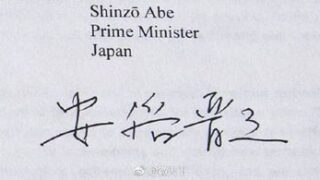 Shinzō Abe
Prime Minister
Japan
安倍晋三